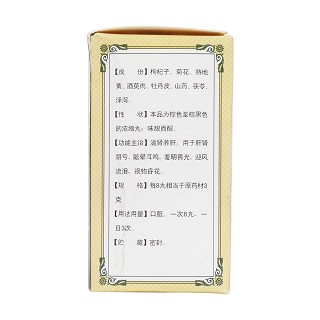 【成　份】枸杞子、菊花、熟地
黄、酒萸肉、牡丹皮、山药、茯苓、
泽泻。
【性　状】本品为棕色至棕黑色
的浓缩丸；味甜而酸。
【功能主治】滋肾养肝。用于肝肾
阴亏，眩晕耳鸣，羞明畏光，迎风
流泪，视物昏花。
【规　格】每8丸相当于原药材3
克
【用法用量】口服。一次8丸，一
日3次。
【贮　藏】密封。